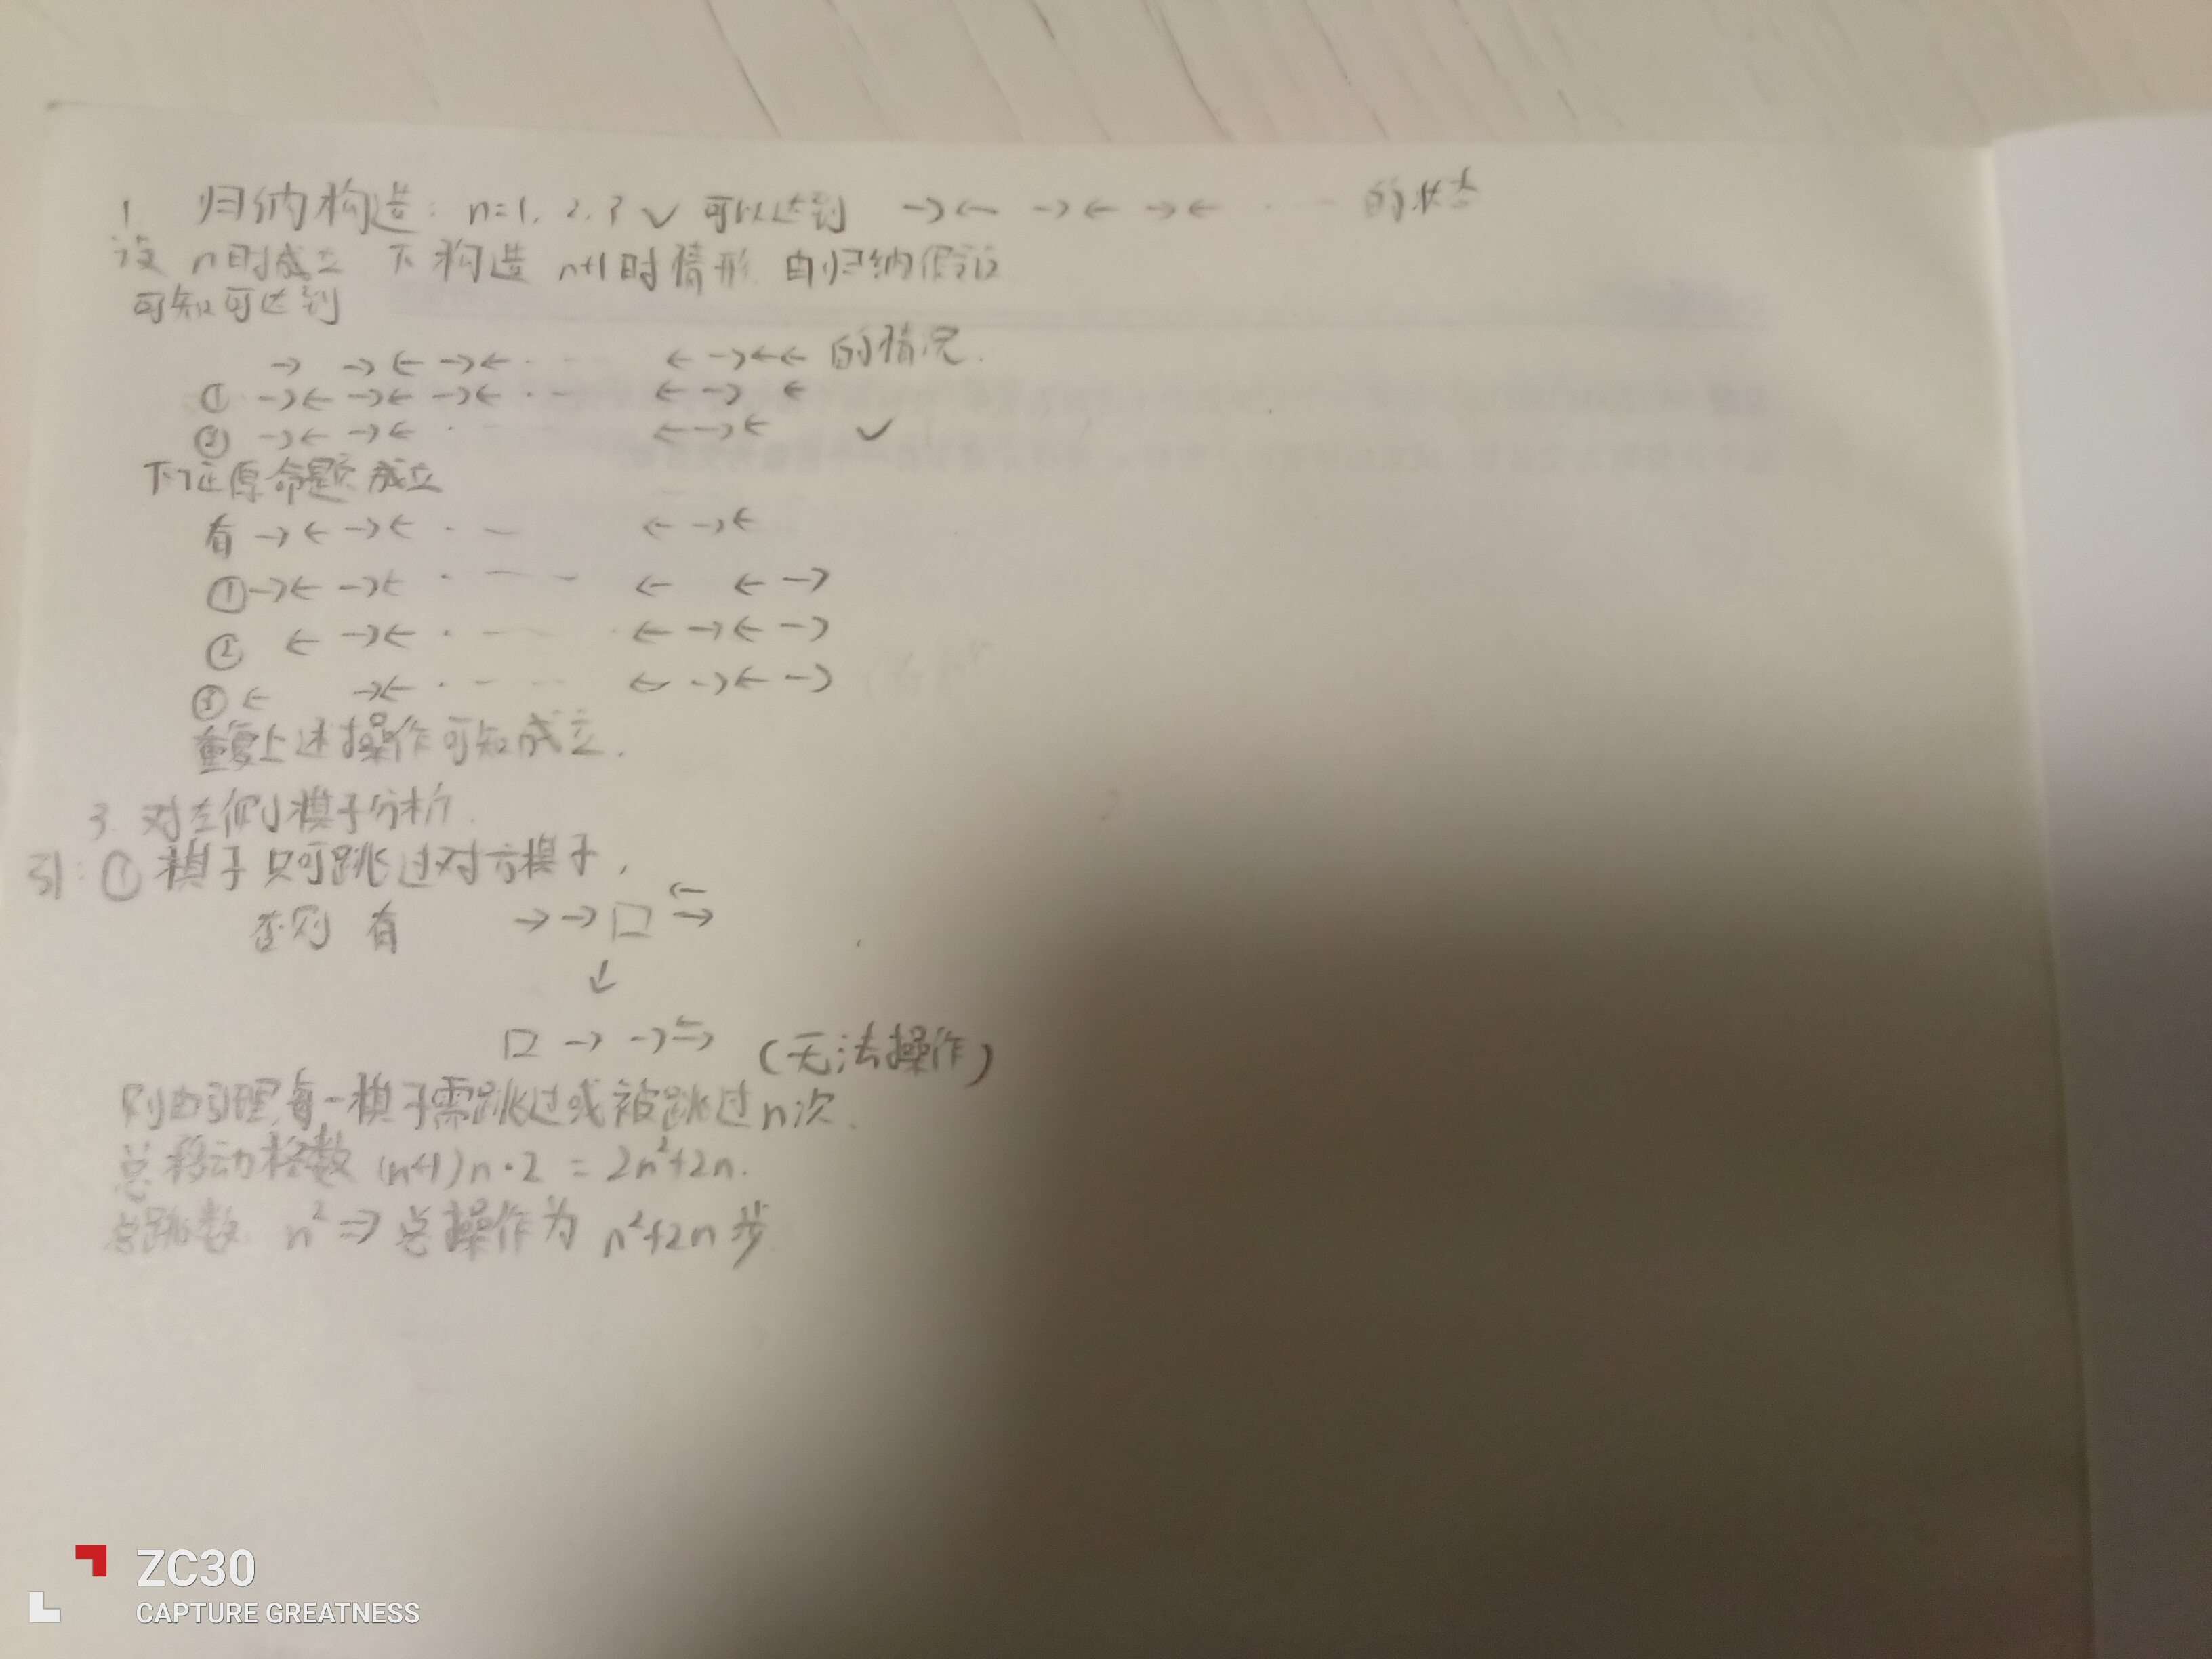 1. 归纳构造: n=1, 2, 3 ✓ 可以达到 →← →← →← · — 的状态
设 n时成立 下构造 n+1时情形 由归纳假设
可知可达到
→ →← →← · — — ← →←← 的情况.
① →← →← →← · — ← → ←
② →← →← · — ←→← ✓
下证原命题成立
有 →← →← · — ← →←
① →← →← · — — ← ← →
② ← →← · — — ← →← →
③ ← →← · — — ← →← →
重复上述操作可知成立.
3. 对左侧棋子分析.
引: ① 棋子只可跳过对方棋子,
否则 有 → → □ ⇆
↓
□ → → ⇆ (无法操作)
则由引理,每一棋子需跳过或被跳过n次.
总移动格数 (n+1)n·2 = 2n²+2n.
总跳数 n² ⇒ 总操作为 n²+2n 步
ZC30
CAPTURE GREATNESS